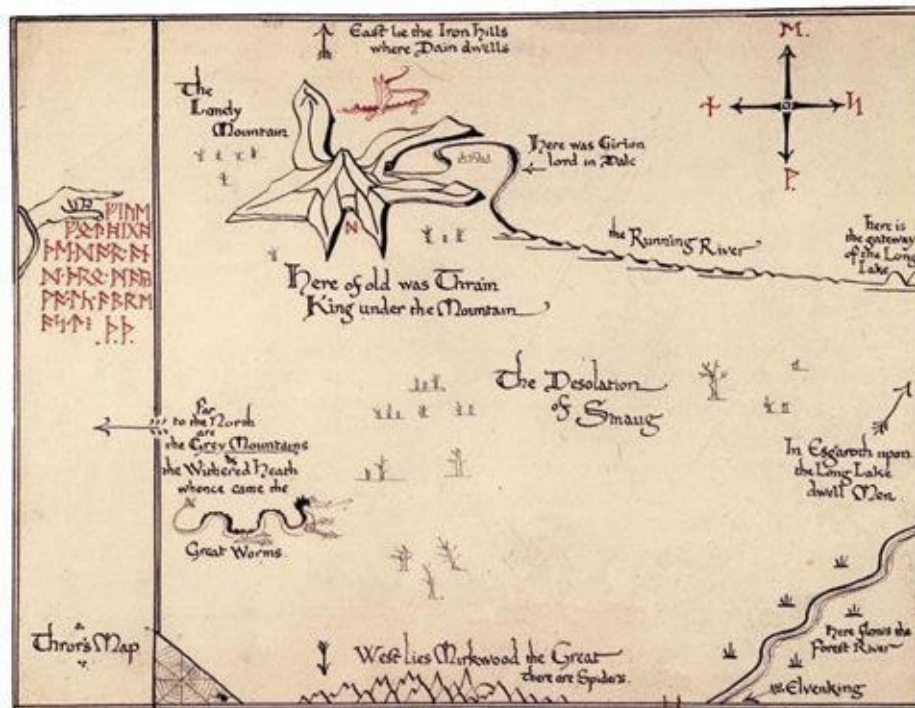 East lie the Iron Hills
where Dain dwells
The
Lonely
Mountain
ᛖ.
ᚾ
ᛋ
ᚹ.
Here was Girion
lord in Dale
ᚠᛁᚢᛖ
ᚠᛟᛏ᛫ᚻᛁᚷᚻ
ᚦᛖ᛫ᛞᚩᚱ᛫ᚪᚾ
ᛞ᛫ᚦᚱᛟ᛫ᛗᚪᚣ
ᚹᚪᛚᚳ᛫ᚪᛒᚱᛖ
ᚪᛋᛏ᛬
᛫ᚦ᛫ᚦ᛫
the Running River
here is
the gateway
of the Long
Lake
Here of old was Thrain
King under the Mountain
The Desolation
of Smaug
Far
to the North
are
the Grey Mountains
&
the Withered Heath
whence came the
Great Worms.
In Esgaroth upon
the Long Lake
dwell Men
Thror's Map
West lies Mirkwood the Great
there are Spiders.
Here flows the
Forest River
Elvenking